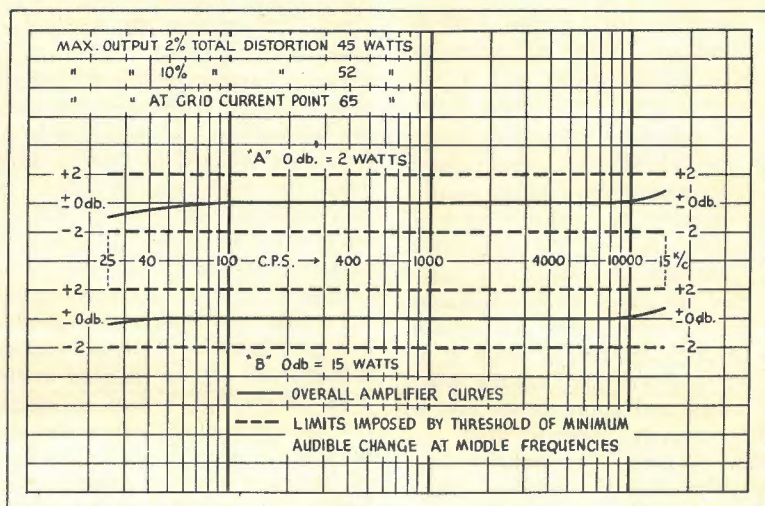 MAX. OUTPUT 2% TOTAL DISTORTION 45 WATTS
" " 10% " " 52 "
" " AT GRID CURRENT POINT 65 "
"A" 0 db. = 2 WATTS
+2 +2
±0db. ±0db.
-2 -2
25 40 100 C.P.S. → 400 1000 4000 10000 15 K/c
+2 +2
±0db. ±0db.
-2 -2
"B" 0db = 15 WATTS
OVERALL AMPLIFIER CURVES
LIMITS IMPOSED BY THRESHOLD OF MINIMUM
AUDIBLE CHANGE AT MIDDLE FREQUENCIES